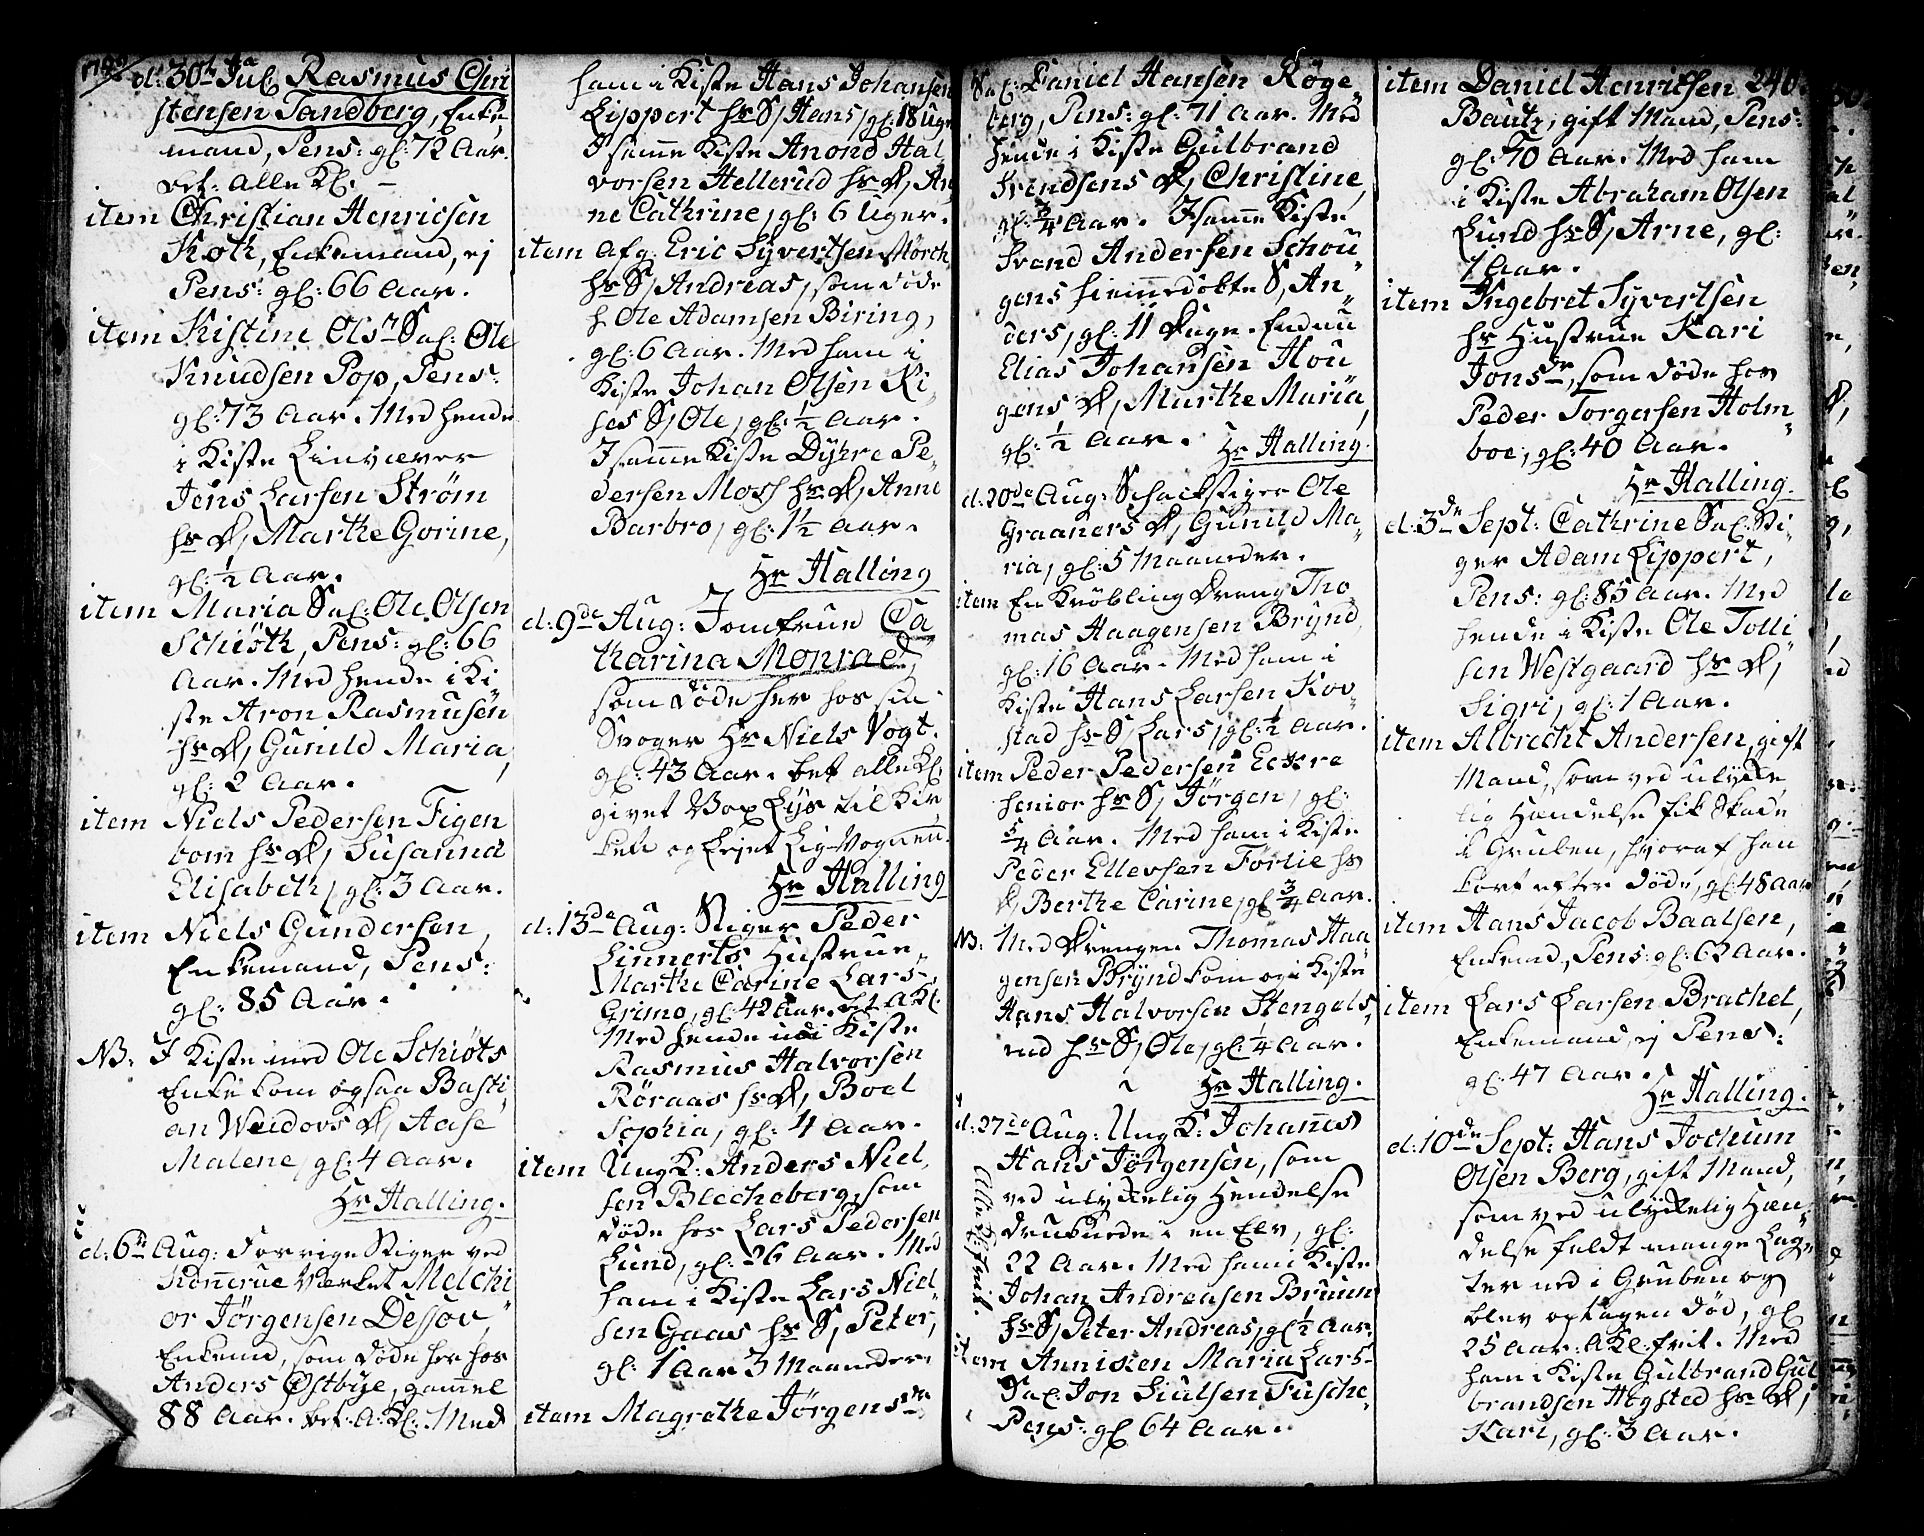 d: 30te Jul: Rasmus Chri
stensen Sandberg, Enke,
mand, Pens: gl: 72 Aar.
bet: alle Kl. –
item Christian Henricsen
Koth, Enkemand, ej
Pens: gl: 66 Aar.
item Kistine Olsdr Sal: Ole
Knudsen Pop, Pens:
gl: 73 Aar. Med hende
i Kiste Linvæver
Jens Larsen Strøm
hs D, Marthe Gorine,
gl: ½ Aar.
item Maria Sal: Ole Olsen
Schiöth, Pens: gl: 66
Aar. Med hende i Ki
ste Aron Rasmusen
hs D, Gunild Maria,
gl: 2 Aar.
item Niels Pedersen Figen
bom hs D, Susanna
Elisabeth, gl: 3 Aar.
item Niels Gundersen,
Enkemand, Pens:
gl: 85 Aar.
NB: I Kiste med Ole Schiöts
Enke kom ogsaa Basti
an Weidovs D, Aase
Malene, gl: 4 Aar.
Hr Halling.
d: 6te Aug: Forrige Stiger ved
Kommerue Værket Melchi
or Jørgensen Dessov,
Enkemd, som døde her hos
Anders Østbye, gammel
88 Aar. bet: A: Kl: Med
ham i Kiste Hans Johansen
Lippert hs S, Hans, gl: 18 Uger
I samme Kiste Anond Hal
vorsen Hellerud hs D, An
ne Cathrine, gl: 6 Uger.
item Afg: Eric Syvertsen Mörch
hs S, Andreas, som døde
h Ole Adamsen Biring,
gl: 6 Aar. Med ham i
Kiste Johan Olsen Ri
ses S, Ole, gl: ½ Aar.
I samme Kiste Dyhre Pe
dersen Moss hs D, Anne
Barbro, gl: 1½ Aar.
Hr Halling
d: 9de Aug: Jomfrue Ca
tharina Monrad,
som døde her hos sin
Svoger Hr Niels Vogt.
gl: 43 Aar. bet alle Kl.
givet Vox Lys til Kir
ken og lejet Lig-Vognen.
Hr Halling
d: 13de Aug: Stiger Peder
Linnerts Hustrue
Marthe Carine Lars-
Grimo, gl: 42 Aar. bet A Kl.
Med hende udi Kiste
Rasmus Halvorsen
Röraas hs D, Boel
Sophia, gl: 4 Aar.
item Ung K: Anders Niel
sen Blecheberg, som
døde hos Lars Pedersen
Lund, gl: 26 Aar. Med
ham i Kiste Lars Niel
sen Gaas hs S, Peter,
gl: 1 Aar 3 Maaneder.
item Magrethe Jörgensdr
Sal: Daniel Hansen Röge
berg, Pens: gl: 71 Aar. Med
hende i Kiste Gulbrand
Svendsens D, Christine,
gl: ¾ Aar. I samme Kiste
Svend Andersen Schou
gens hiemmedøbte S, An
ders, gl: 11 Duge. Endnu
Elias Johansen Hou
gens D, Marthe Maria,
gl: ½ Aar. Hr Halling.
d: 20de Aug: Schachstiger Ole
Graaners D, Gunild Ma
ria, gl: 5 Maaneder.
item En Krøbling Dreng Tho
mas Haagensen Brynd
gl: 16 Aar. Med ham i
Kiste Hans Larsen Kov
stad hs S, Lars, gl: ½ Aar.
item Peder Pedersen Eckre
senior hs S, Jörgen, gl:
5/4 Aar. Med ham i Kiste
Peder Ellevsen Førlie hs
D, Berthe Carine, gl ¾ Aar.
NB: Med Drengen Thomas Haa
gensen Brynd kom og i Kiste
Hans Halvorsen Stengels
rud hs S, Ole, gl: ¼ Aar.
Hr Halling.
d: 27de Aug: Ung K: Johannes
Hans Jörgensen, som
ved ulykkelig Hendelse
druknede i en Elv, gl:
22 Aar. Med ham i Kiste
Johan Andreasen Bruun
hs S, Peter Andreas, gl ½ Aar.
Alle Kl: frit.
item Annisken Maria Lars-
Sal: Jon Siulsen Fusche
Pens: gl 64 Aar.
item Daniel Henricsen 240.
Bautz, gift Mand, Pens:
gl: 70 Aar. Med ham
i Kiste Abraham Olsen
Lund hs S, Arne, gl:
1 Aar.
item Ingebret Syvertsen
hs Hustrue Kari
Jonsdr, som døde hos
Peder Torgersen Holm
boe, gl: 40 Aar.
Hr Halling.
d: 3de Sept: Cathrine Sal: Sti
ger Adam Lippert,
Pens: gl: 85 Aar. Med
hende i Kiste Ole Tolli
sen Westgaard hs D,
Sigri, gl: 1 Aar.
item Albrecht Andersen, gift
Mand, som ved ulykke
lig Hændelse fik Skade
i Gruben, hvoraf han
kort efter døde, gl: 48 Aar
item Hans Jacob Baalsen,
Enkemd, Pens: gl: 62 Aar.
item Lars Larsen Brachel,
Enkemand, ej Pens:
gl: 47 Aar.
Hr Halling.
d: 10de Sept: Hans Jochum
Olsen Berg, gift Mand,
som ved ulykkelig Hæn
delse faldt mange Lag
ter ned i Gruben og
blev optagen død, gl
25 Aar. A Kl: frit. Med
ham i Kiste Gulbrand Gul
brandsen Høgsted hs D,
Kari, gl: 3 Aar.